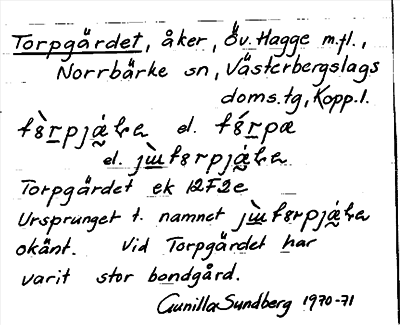 Torpgärdet, åker, Öv. Hagge m.fl.,
Norrbärke sn, Västerbergslags
doms.tg, Kopp.l.
el.
el.
Torpgärdet ek 12F2e
Ursprunget t. namnet
okänt. Vid Torpgärdet har
varit stor bondgård.
Gunilla Sundberg 1970-71